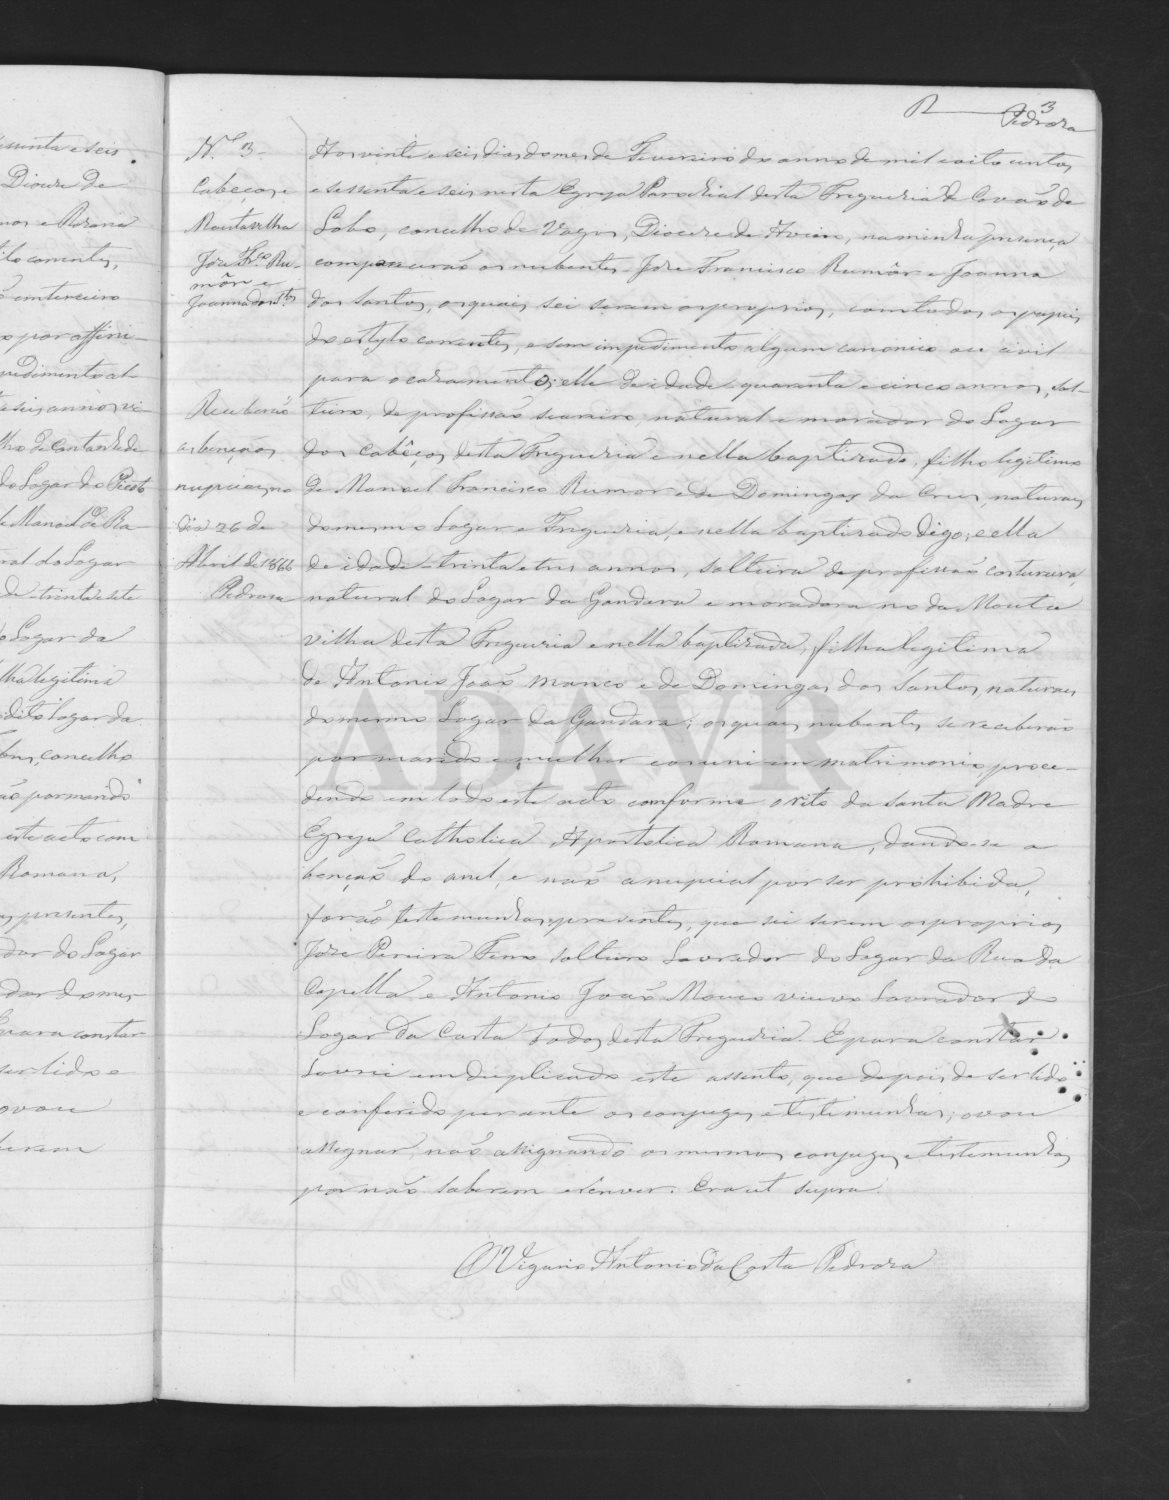 3
Pedroza
N.º 3
Cabeços e
Moutavelha
Jose Fr.co Ru-
môr e
Joanna dos St.os
Receberão
as benções
nupciaes no
dia 26 de
Abril de 1866
Pedroza
Aos vinte e seis dias do mes de Fevereiro do anno de mil oito centos
e sessenta e seis nesta Egreja Parochial desta Freguezia de Covão do
Lobo, concelho de Vagos, Diocese de Aveiro, na minha presença
comparecerão os nubentes Jose Francisco Rumôr e Joanna
dos Santos, os quaes sei serem os proprios, com todos os papeis
do estylo correntes, e sem impedimento algum canonico ou civil
para o casamento; elle de idade quarenta e cinco annos, sol-
teiro, de profissão seareiro, natural e morador do Logar
dos Cabêços desta Freguezia e nella baptizado, filho legitimo
de Manoel Francisco Rumor e de Domingas da Cruz, naturaes
do mesmo Logar e Freguezia, e nella baptizado digo; e ella
de idade trinta e tres annos, solteira de profissão costureira
natural do Logar da Gandara e moradora no da Mouta
velha desta Freguezia e nella baptizada, filha legitima
de Antonio João Manco e de Domingas dos Santos, naturaes
do mesmo Logar da Gandara; os quaes nubentes se receberão
por marido e mulher e os uni em matrimonio, proce-
dendo em todo este acto conforme o rito da Santa Madre
Egreja Catholica Apostolica Romana, dando-se a
benção do anel, e não a nupcial por ser prohibida,
forão testemunhas presentes, que sei serem os proprios
Jose Pereira Novo solteiro Lavrador do Logar da Rua da
Capella e Antonio João Novo viuvo Lavrador do
Logar da Costa todos desta Freguezia. E para constar
Lavrei em duplicado este assento, que depois de ser lido
e conferido perante os conjuges e testemunhas, o vou
assignar, não assignando os mesmos conjuges e testemunhas
por não saberem escrever. Era ut supra.
O Vigario Antonio da Costa Pedroza
ADAVR